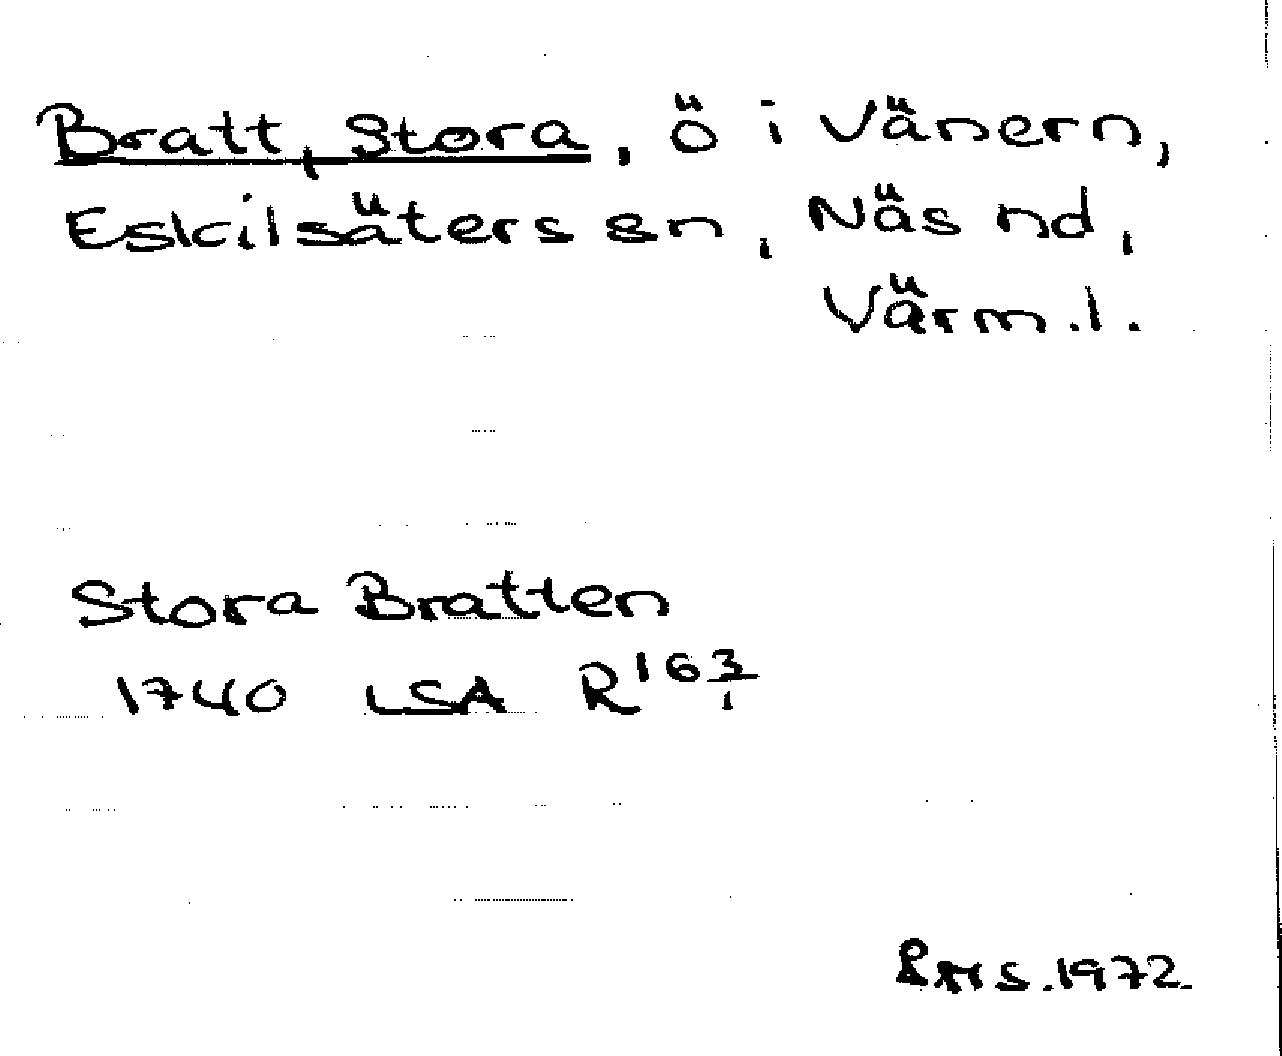 Bratt, Stora, ö i Vänern,
Eskilsäters sn, Näs hd,
Värm.l.
Stora Bratten
1740 LSA R16 3/1
1972